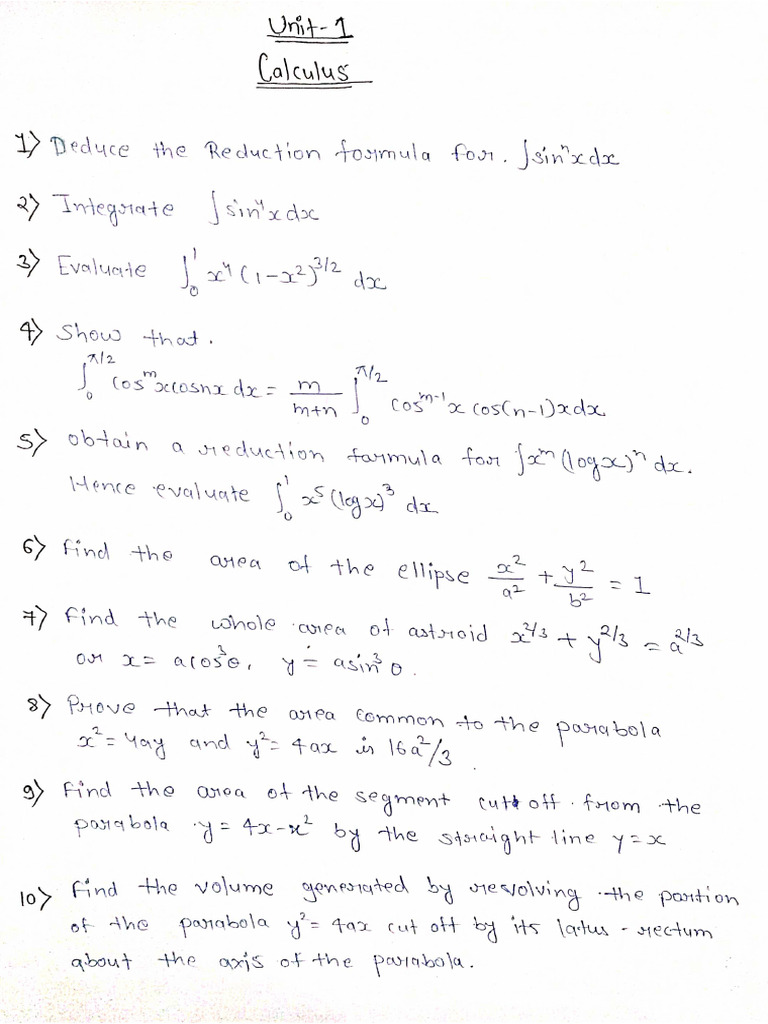 Unit-1
Calculus
1) Deduce the Reduction formula for. ∫sinⁿx dx
2) Integrate ∫sin⁴x dx
3) Evaluate ∫₀¹ x⁴(1-x²)^3/2 dx
4) Show that.
∫₀^π/2 cosᵐx cosnx dx = m/(m+n) ∫₀^π/2 cosᵐ⁻¹x cos(n-1)x dx
5) obtain a reduction formula for ∫xᵐ(logx)ⁿ dx.
Hence evaluate ∫₀¹ x⁵(logx)³ dx
6) find the area of the ellipse x²/a² + y²/b² = 1
7) find the whole area of astroid x^2/3 + y^2/3 = a^2/3
or x = acos³θ, y = asin³θ.
8) Prove that the area common to the parabola
x²=4ay and y²=4ax is 16a²/3.
9) find the area of the segment cut off from the
parabola y=4x-x² by the straight line y=x
10) find the volume generated by revolving the portion
of the parabola y²=4ax cut off by its latus-rectum
about the axis of the parabola.